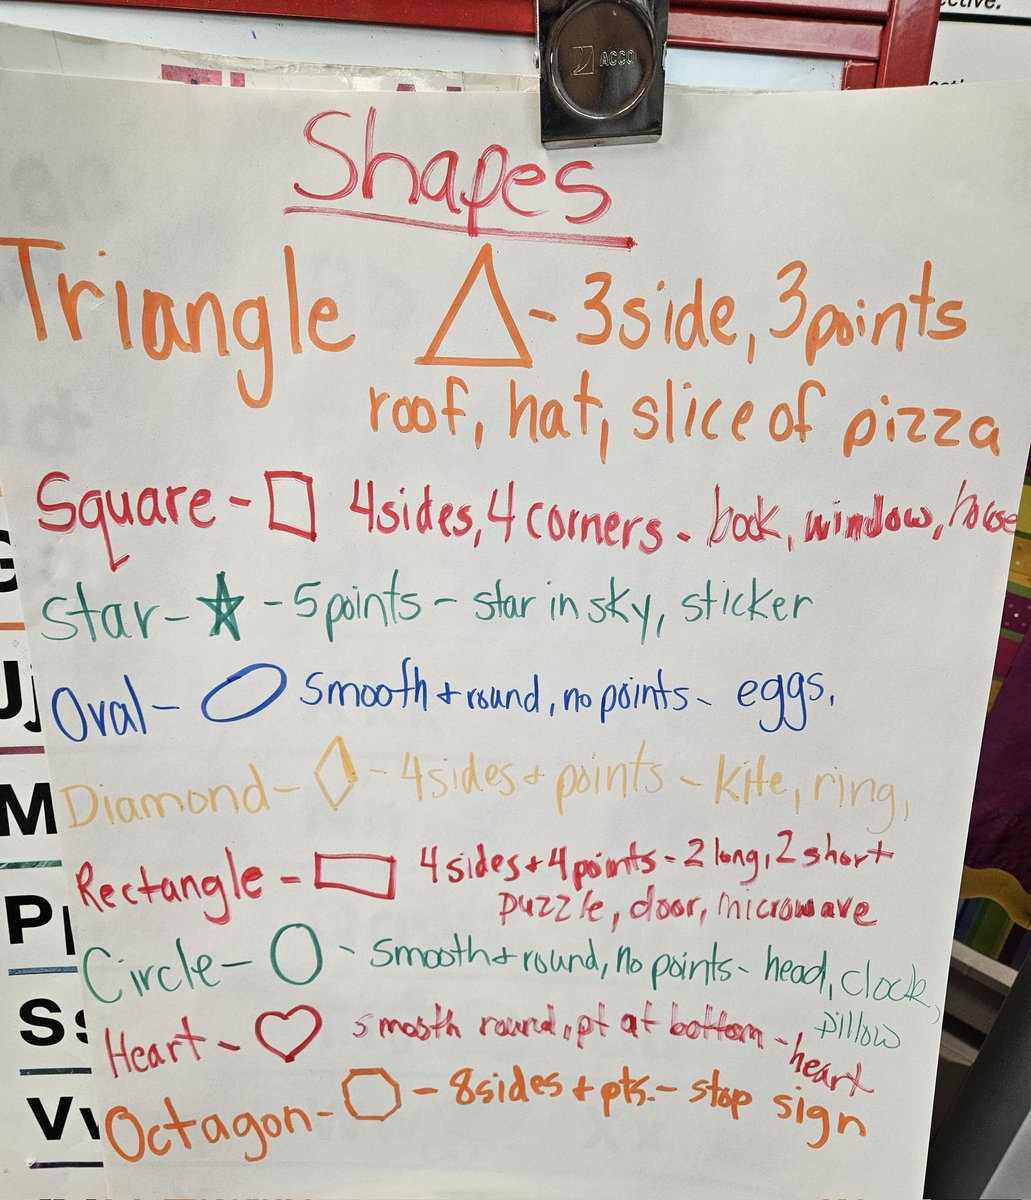 ctive.
ACCO
Shapes
Triangle - 3 side, 3 points
roof, hat, slice of pizza
Square - 4 sides, 4 corners - book, window, house
Star - - 5 points - star in sky, sticker
Oval - smooth + round, no points - eggs,
Diamond - - 4 sides + points - kite, ring,
Rectangle - 4 sides + 4 points - 2 long, 2 short
puzzle, door, microwave
Circle - - smooth + round, no points - head, clock,
pillow
Heart - smooth round, pt at bottom - heart
Octagon - - 8 sides + pts. - stop sign
Jj
M
P
S
V